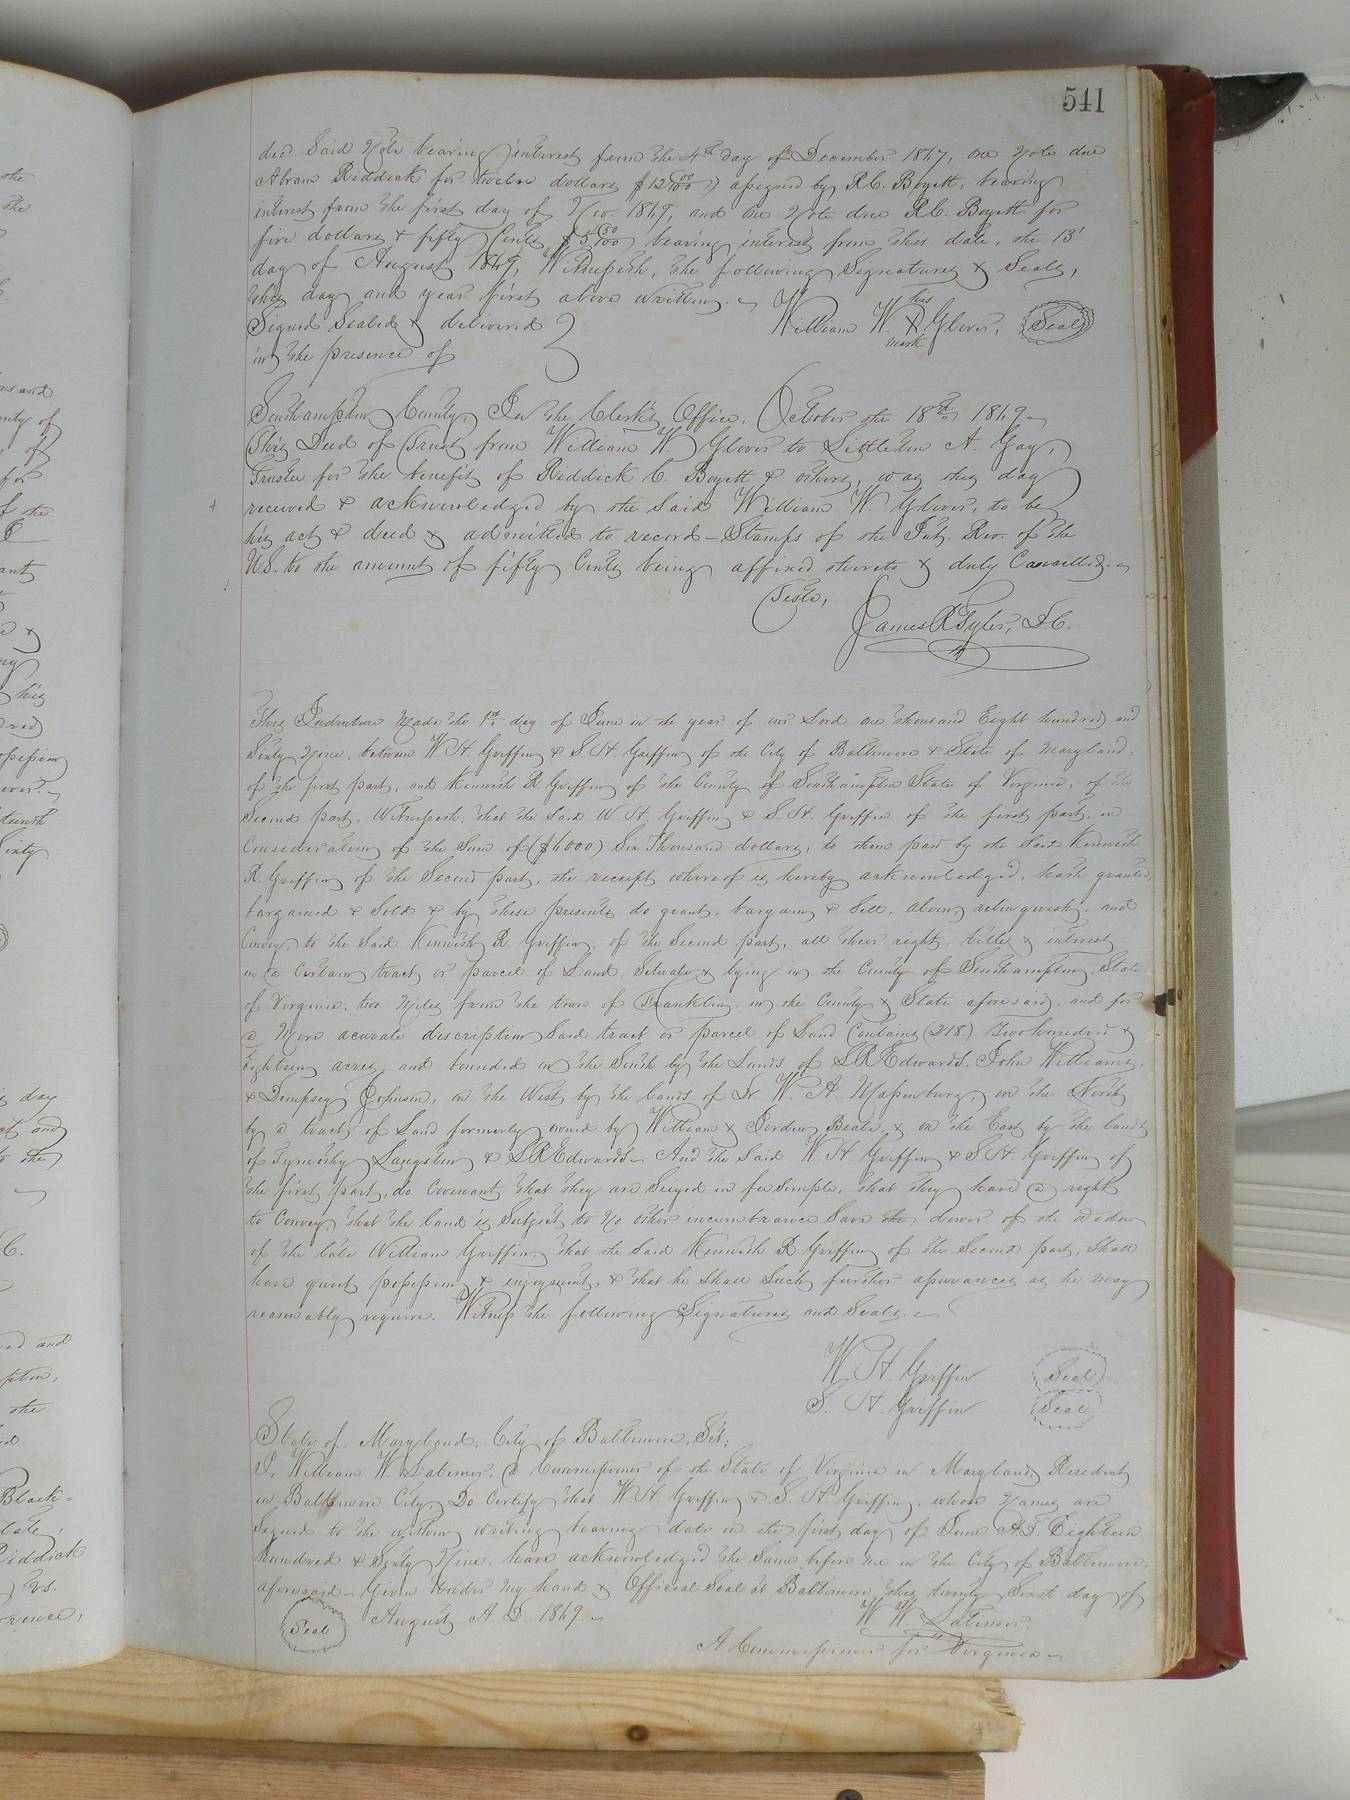 541
ded. Said Note bearing interest from the 4th day of December 1867, one Note due
Abram Riddick for twelve dollars $12 00/100 assigned by R.C. Boyett, bearing
interest from the first day of Nov. 1869, and one Note due R.C. Boyett for
five dollars & fifty Cents $5 50/100 bearing interest from this date, the 13'
day of August 1869, Witnesseth, the following Signatures & Seals,
this day and year first above written.
Signed Sealed & delivered
in the presence of
William W. his X mark Glover, Seal
Southampton County, In the Clerk's Office, October the 18th 1869
This Deed of Trust from William W. Glover to Littleton A. Gay,
Trustee for the benefit of Riddick C. Boyett & others, was this day
received & acknowledged by the said William W. Glover, to be
his act & deed & admitted to record – Stamps of the Int. Rev. of the
U.S. to the amount of fifty Cents being affixed thereto & duly Cancelled.
Teste,
James R. Tyler, D.C.
This Indenture Made the 1st day of June in the year of our Lord one thousand Eight hundred and
Sixty Nine, between W. H. Griffin & S. H. Griffin of the City of Baltimore & State of Maryland,
of the first part, and Kenneth R. Griffin of the County of Southampton State of Virginia, of the
Second part, Witnesseth, that the Said W. H. Griffin & S. H. Griffin of the first part, in
Consideration of the Sum of ($6000) Six Thousand dollars, to them paid by the Said Kenneth
R. Griffin of the Second part, the receipt whereof is hereby acknowledged, hath granted,
bargained & Sold & by these presents do grant, bargain & Sell, alien, relinquish, and
Convey to the Said Kenneth R. Griffin, of the Second part, all their right, title & interest
in a Certain tract or parcel of Land Situate & lying in the County of Southampton, State
of Virginia, two Miles from the town of Franklin in the County & State aforesaid, and for
a More acurate discription Said tract or parcel of Land Contains (218) Two hundred &
Eighteen acres, and bounded on the South by the Lands of S R Edwards, John Williams,
& Dempsey Johnson, on the West by the lands of Dr. W. A. Massenburg, on the North
by a tract of Land formerly owned by William & Jordan Beale, & on the East by the lands
of Tymothy Langston & S R Edwards And the Said W H Griffin & S H. Griffin of
the first part, do Covenant that they are Seized in fee Simple, that they have a right
to Convey that the land is Subject to No other incumbrance Save the dower of the widow
of the late William Griffin, that the Said Kenneth R Griffin of the Second part, Shall
have quiet possession & enjoyment, & that he Shall Such further assurances as he may
reasonably require. Witness the following Signatures and Seals.
W. H. Griffin Seal
S. H. Griffin Seal
State of Maryland, City of Baltimore, Sct;
I, William W Latimer, a Commissioner of the State of Virginia in Maryland, Resident
in Baltimore City, Do Certify that W. H. Griffin & S. H. Griffin, whose Names are
Signed to the within writing bearing date on the first day of June A.D. Eighteen
Hundred & Sixty Nine, have acknowledged the Same before me in the City of Baltimore,
aforesaid – Given Under My hand & Official Seal at Baltimore, this twenty first day of
Seal August A. D 1869.
W W Latimer.
A Commissioner for Virginia